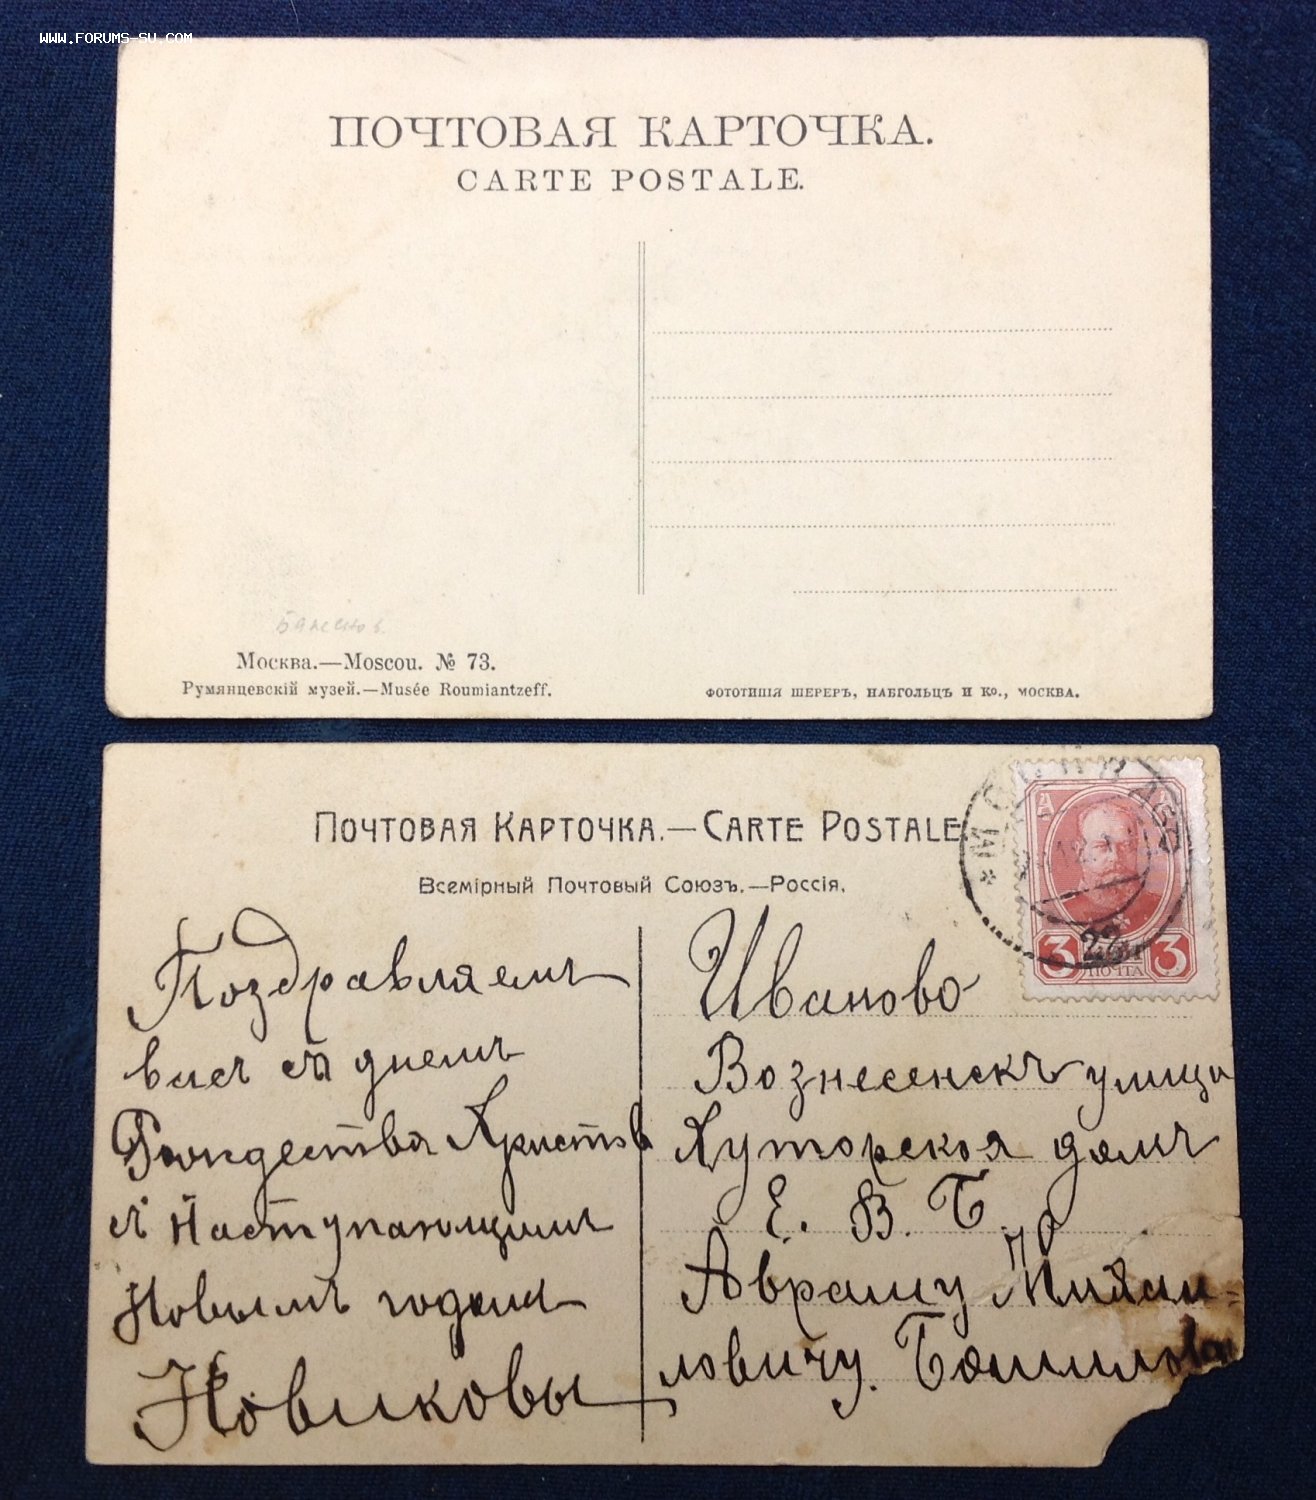 WWW.FORUMS-SU.COM
ПОЧТОВАЯ КАРТОЧКА.
CARTE POSTALE.
Баженов.
Москва.—Moscou. № 73.
Румянцевскій музей.—Musée Roumiantzeff.
ФОТОТИПІЯ ШЕРЕРЪ, НАБГОЛЬЦЪ И Ко., МОСКВА.
ПОЧТОВАЯ КАРТОЧКА.—CARTE POSTALE
Всемірный Почтовый Союзъ.—Россія.
Поздравляемъ
васъ съ днемъ
Рождества Христов
съ Наступающимъ
Новымъ годомъ
Новиковы
3 ПОЧТА 3
22
Иваново
Вознесенскъ улица
Хуторская домъ
Е. В. Б.
Аврааму Михаи-
ловичу.